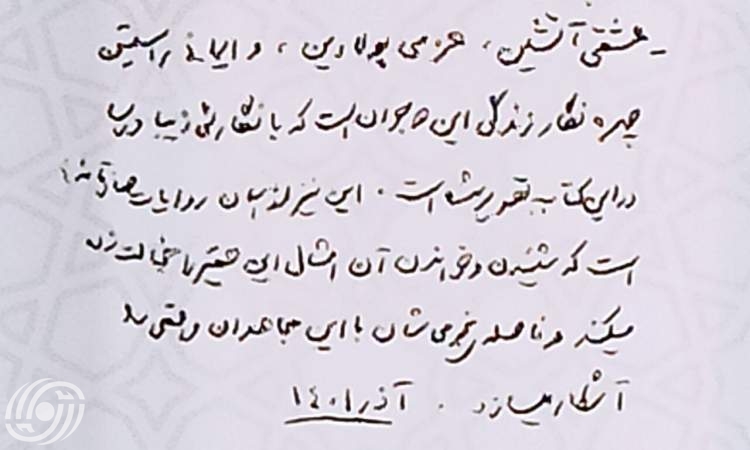 ـ عشقی آتشین، عزمی پولادین، و ایمانی راستین
چهره نگار زندگی این جوان است که با نگارشی زیبا و رسا
در این کتاب تصویر شده است. این نیز از آن روایات
است که شنیدن و خواندن آن امثال این حقیر را خجالت زده
میکند و فاصله‌ی نجومی شان با این مجاهدان واقعی را
آشکار میسازد. آذر ۱۴۰۱